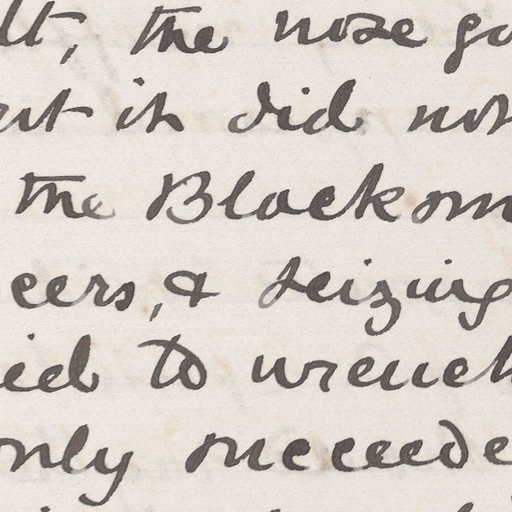 lt, the nose go
ut it did not
the Blacksm
eers, & seizing
ied to wrench
only succeede